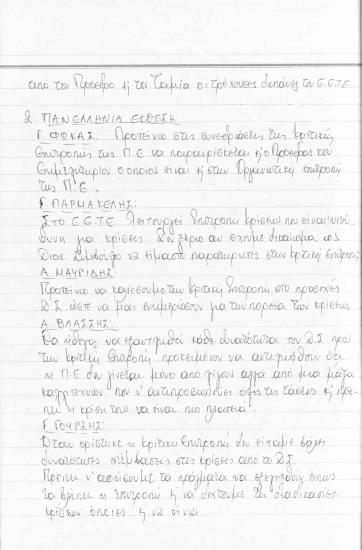 από τον Πρόεδρο κ' τον Ταμία οι τρέχουσες δαπάνες του Ε.Ε.Τ.Ε.
2. ΠΑΝΕΛΛΗΝΙΑ ΕΚΘΕΣΗ:
Γ. ΦΩΚΑΣ. Προτείνω στις συνεδριάσεις της κριτικής
Επιτροπής της Π.Ε να παραυρίσκεται κ' ο Πρόεδρος του
Επιμελητηρίου ο οποίος είναι κ' στην Οργανωτική επιτροπή
της Π.Ε.
Γ. ΠΑΡΜΑΚΕΛΗΣ:
Στο Ε.Ε.Τ.Ε λειτουργεί Επιτροπή κρίσεων που είναι υπεύ-
θυνη για κρίσεις. Δεν ξέρω αν έχουμε δικαίωμα ως
Διοικ. Συμβούλιο να είμαστε παρατηρητές στην κριτική επιτροπή
Α. ΜΑΥΡΙΔΗΣ:
Προτείνω να καλέσουμε την κριτική Επιτροπή στο προσεχές
Δ.Σ. ώστε να μας ενημερώσουν για την πορεία των κρίσεων.
Α. ΒΛΑΣΣΗΣ:
Θα ήθελα να εξαντληθεί κάθε δυνατότητα του Δ.Σ προς
την κριτική Επιτροπή προκειμένου να αντιληφθούν ότι
η Π.Ε δεν γίνεται μόνο από λίγους αλλά από μια μάζα
καλλιτεχνών που ν' αντιπροσωπεύει όλες τις τάσεις κ' πρέ-
πει η κρίση τους να είναι πιο πλατειά.
Γ. ΓΟΥΡΖΗΣ:
Όταν ορίστηκε η κριτική Επιτροπή δεν είπαμε
δυνατότητες επέμβασης στις κρίσεις από το Δ.Σ.
Πρέπει ν' αφήσουμε τα πράγματα να εξελιχθούν όπως
τα βλέπει η Επιτροπή κ' να δεχτούμε τις διαδικασίες
κρίσεων όποιες κ' να είναι.